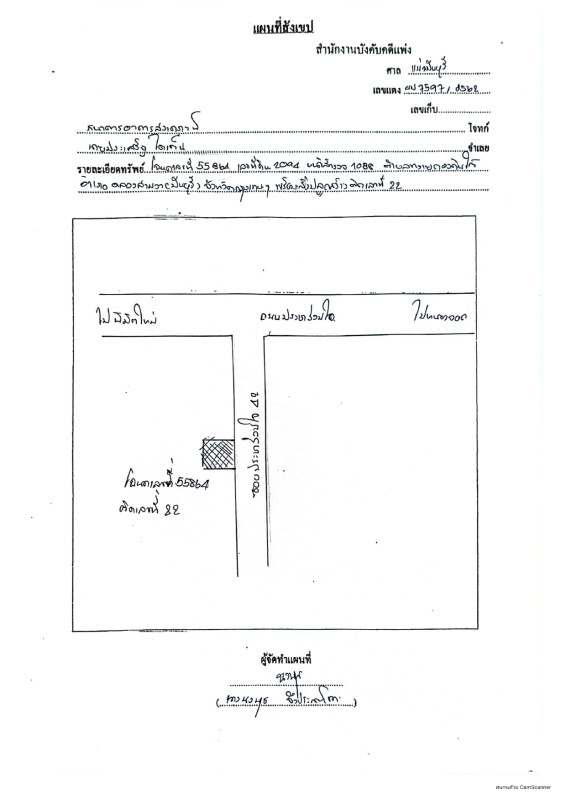 แผนที่สังเขป
สำนักงานบังคับคดีแพ่ง
ศาล แพ่งมีนบุรี
เลขแดง ผบ 7597 / 2562
เลขเก็บ
ธนาคารอาคารสงเคราะห์ โจทก์
จำเลย
รายละเอียดทรัพย์ โฉนดเลขที่ 55864 เลขที่ดิน 2094 หน้าสำรวจ 1088 ตำบลทรายกองดินใต้
อำเภอ คลองสามวา(มีนบุรี) จังหวัดกรุงเทพฯ พร้อมสิ่งปลูกสร้าง เลขที่ 22
ไปนิมิตใหม่ ถนนประชาร่วมใจ ไปหนองจอก
ซอยประชาร่วมใจ 42
โฉนดเลขที่ 55864
เลขที่ 22
ผู้จัดทำแผนที่
สแกนด้วย CamScanner